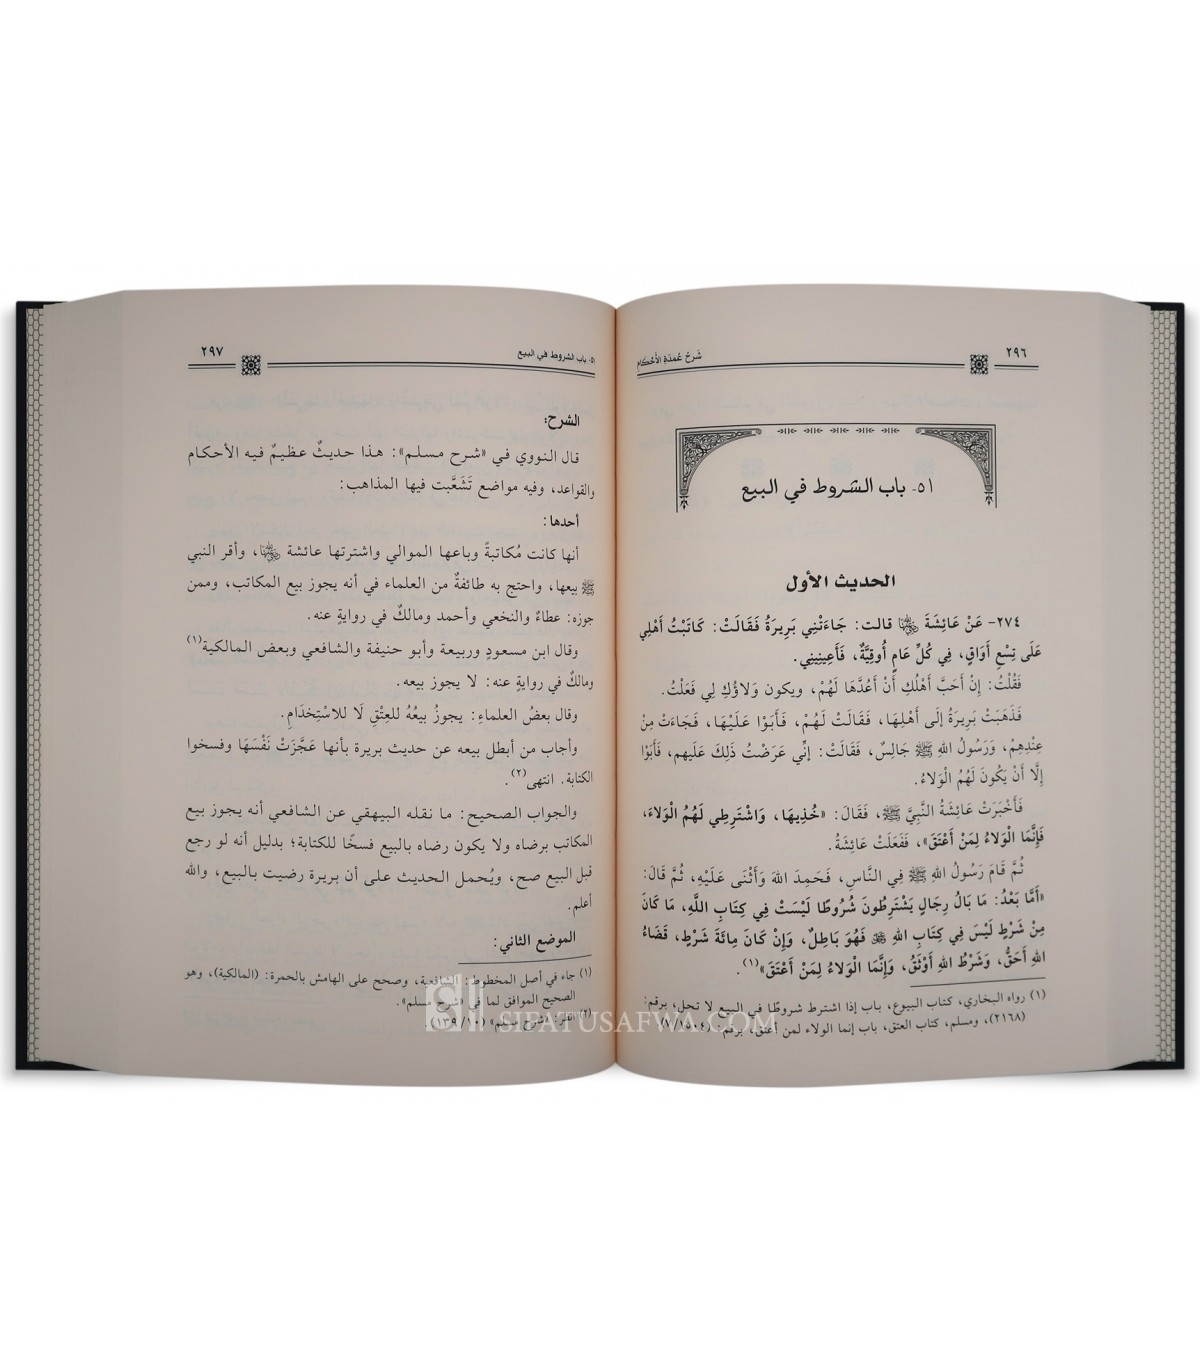 ٢٩٦
شَرحُ عُمدَةِ الأَحكَامِ
٥١- باب الشروط في البيع
الحديث الأول
٢٧٤- عَنْ عَائِشَةَ ﵂ قالت: جَاءَتْنِي بَرِيرَةُ فَقَالَتْ: كَاتَبْتُ أَهْلِي
عَلَى تِسْعِ أَوَاقٍ، فِي كُلِّ عَامٍ أُوقِيَّةٌ، فَأَعِينِينِي.
فَقُلْتُ: إِنْ أَحَبَّ أَهْلُكِ أَنْ أَعُدَّهَا لَهُمْ، ويكون وَلاؤُكِ لِي فَعَلْتُ.
فَذَهَبَتْ بَرِيرَةُ إلَى أَهْلِهَا، فَقَالَتْ لَهُمْ، فَأَبَوْا عَلَيْهَا، فَجَاءَتْ مِنْ
عِنْدِهِمْ، وَرَسُولُ اللهِ ﷺ جَالِسٌ، فَقَالَتْ: إنِّي عَرَضْتُ ذَلِكَ عَلَيهم، فَأَبَوْا
إلَّا أَنْ يَكُونَ لَهُمُ الْوَلاءُ.
فَأَخْبَرَتْ عَائِشَةُ النَّبِيَّ ﷺ، فَقَالَ: «خُذِيهَا، وَاشْتَرِطِي لَهُمُ الْوَلاءَ،
فَإِنَّمَا الْوَلاءُ لِمَنْ أَعْتَقَ»، فَفَعَلَتْ عَائِشَةُ.
ثُمَّ قَامَ رَسُولُ اللهِ ﷺ فِي النَّاسِ، فَحَمِدَ اللهَ وَأَثْنَى عَلَيْهِ، ثُمَّ قَالَ:
«أَمَّا بَعْدُ: مَا بَالُ رِجَالٍ يَشْتَرِطُونَ شُرُوطًا لَيْسَتْ فِي كِتَابِ اللَّهِ، مَا كَانَ
مِنْ شَرْطٍ لَيْسَ فِي كِتَابِ اللهِ ﷻ فَهُوَ بَاطِلٌ، وَإِنْ كَانَ مِائَةَ شَرْطٍ، قَضَاءُ
اللهِ أَحَقُّ، وَشَرْطُ اللهِ أَوْثَقُ، وَإِنَّمَا الْوَلاءُ لِمَنْ أَعْتَقَ»(١).
(١) رواه البخاري، كتاب البيوع، باب إذا اشترط شروطًا في البيع لا تحل، برقم:
(٢١٦٨)، ومسلم، كتاب العتق، باب إنما الولاء لمن أعتق، برقم: (٨/١٥٠٤).
٥١- باب الشروط في البيع
٢٩٧
الشرح:
قال النووي في «شرح مسلم»: هذا حديثٌ عظيمٌ فيه الأحكام
والقواعد، وفيه مواضع تَشَعَّبت فيها المذاهب:
أحدها:
أنها كانت مُكاتبةً وباعها الموالي واشترتها عائشة ﵂، وأقر النبي
ﷺ بيعها، واحتج به طائفةٌ من العلماء في أنه يجوز بيع المكاتب، وممن
جوزه: عطاءٌ والنخعي وأحمد ومالكٌ في روايةٍ عنه.
وقال ابن مسعودٍ وربيعة وأبو حنيفة والشافعي وبعض المالكية(١)
ومالكٌ في روايةٍ عنه: لا يجوز بيعه.
وقال بعضُ العلماءِ: يجوزُ بيعُهُ للعِتْقِ لَا للاسْتِخدَامِ.
وأجاب من أبطل بيعه عن حديث بريرة بأنها عَجَّزَتْ نَفْسَهَا وفسخوا
الكتابة. انتهى(٢).
والجواب الصحيح: ما نقله البيهقي عن الشافعي أنه يجوز بيع
المكاتب برضاه ولا يكون رضاه بالبيع فسخًا للكتابة؛ بدليل أنه لو رجع
قبل البيع صح، ويُحمل الحديث على أن بريرة رضيت بالبيع، والله
أعلم.
الموضع الثاني:
(١) جاء في أصل المخطوط: الشافعية، وصحح على الهامش بالحمرة: (المالكية)، وهو
الصحيح الموافق لما في «شرح مسلم».
(٢) انظر: «شرح مسلم» (١٣٩/١٠).
SIFATUSAFWA.COM